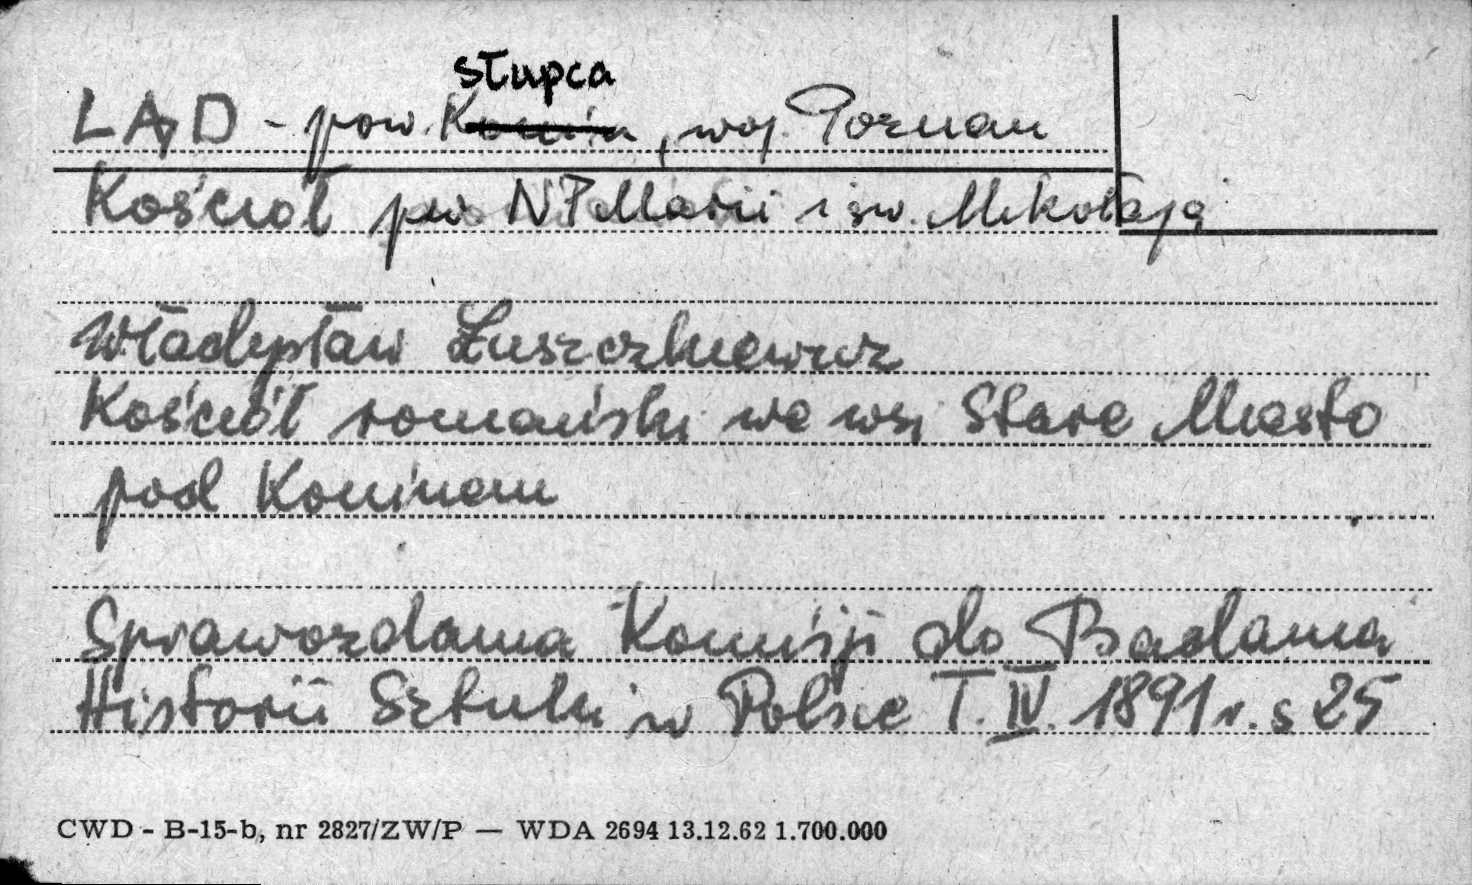 Słupca
LĄD - pow. Konin, woj. Poznań
Kościół pw NP Marii i św. Mikołaja
Władysław Łuszczkiewicz
Kościół romański we wsi Stare Miasto
pod Koninem
Sprawozdania Komisji do Badania
Historii Sztuki w Polsce T. IV. 1891 r. s 25
CWD - B-15-b, nr 2827/ZW/P — WDA 2694 13.12.62 1.700.000